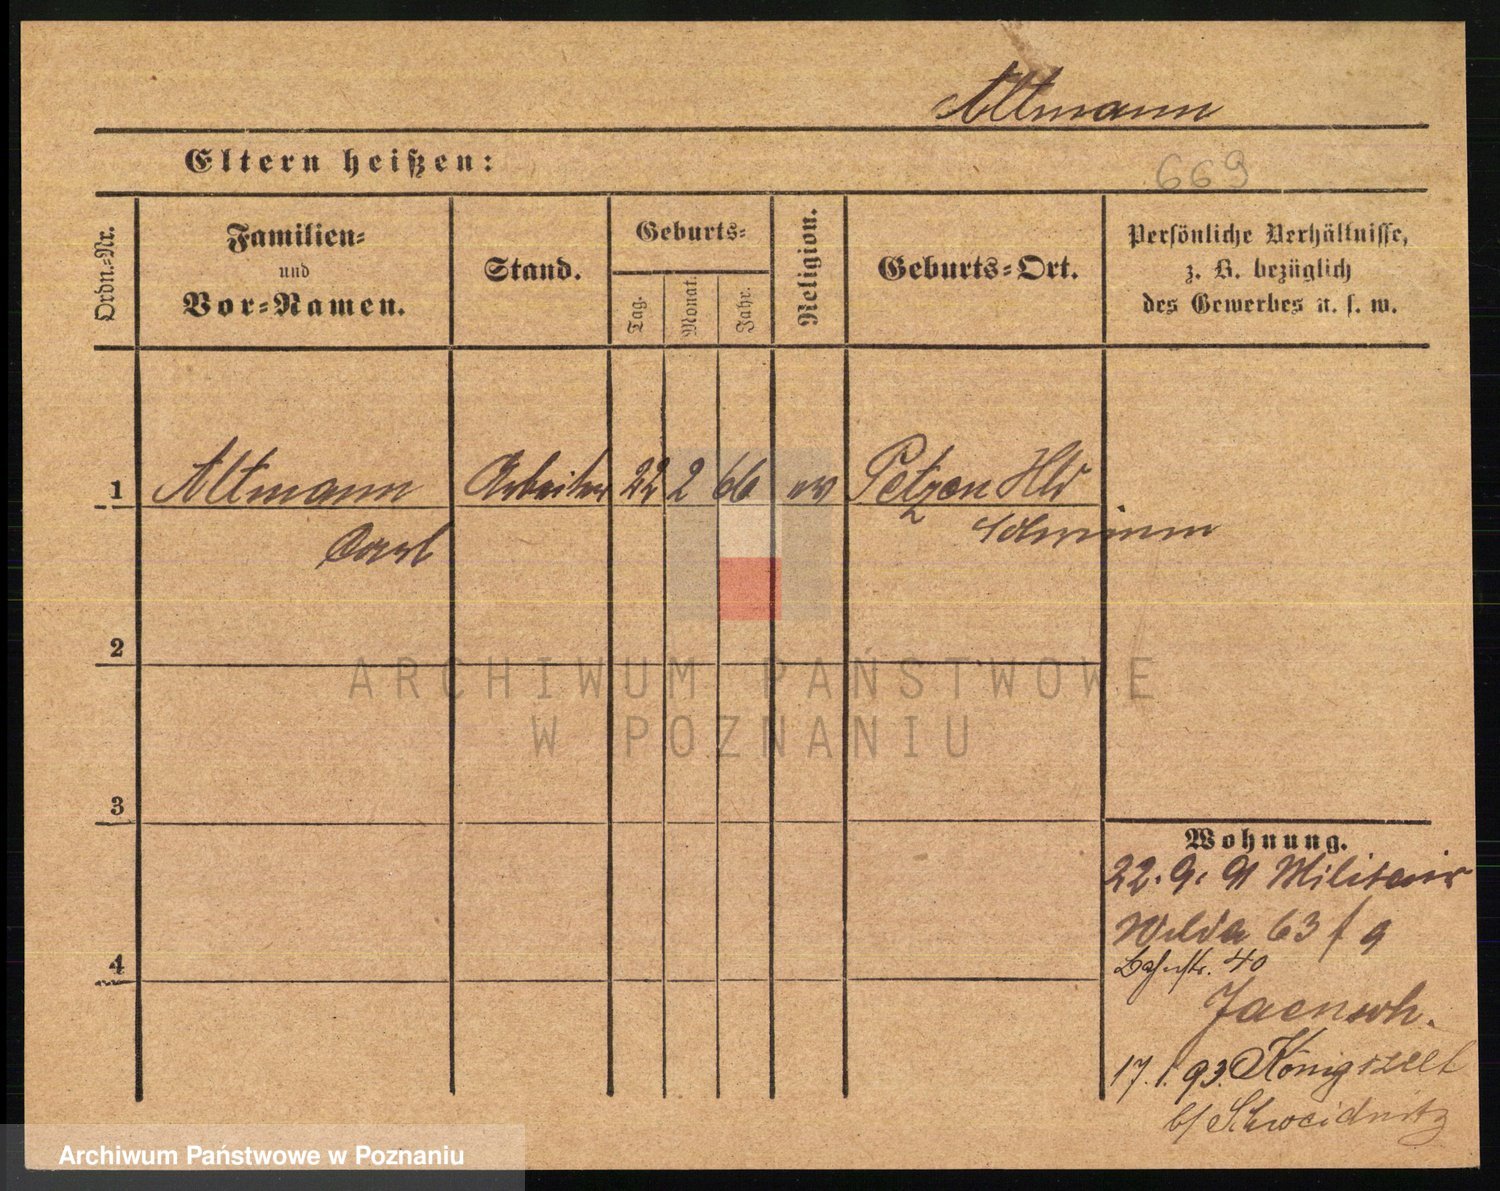 Altmann
Eltern heißen:
669
Ordn.-Nr.
Familien-
und
Vor-Namen.
Stand.
Geburts-
Tag.
Monat.
Jahr.
Religion.
Geburts-Ort.
Persönliche Verhältnisse,
z. B. bezüglich
des Gewerbes u. s. w.
1 Altmann Arbeiter 22 2 66 ev Petzen Hld
Carl
2
ARCHIWUM PAŃSTWOWE
W POZNANIU
3
Wohnung.
22. 9. 91 Militair
Wilda 63 f 9
4
Bahnstr. 40
Jaensch.
17. 1. 93. Königszelt
b/ Schweidnitz
Archiwum Państwowe w Poznaniu